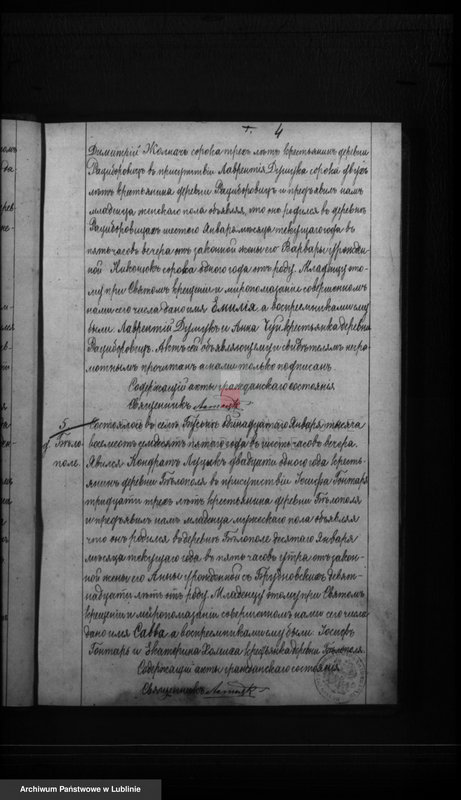 4
Димитрій Жолначъ сорока трехъ лѣтъ крестьянинъ деревни
Радиборовицъ въ присутствіи Лаврентія Думука сорока двухъ
лѣтъ крестьянина деревни Радиборовицъ и предъявилъ намъ
младенца женскаго пола объявляя, что оно родился въ деревнѣ
Радиборовицахъ шестого Января мѣсяца текущаго года въ
пять часовъ вечера отъ законной жены его Варвары урожден-
ной сорока одного года отъ роду. Младенцу это-
му при Святомъ крещеніи и миропомазаніи совершенномъ
нами сего числа дано имя Емилія а воспреемниками ему
были Лаврентій Думукъ и Анна крестьянка деревни
Радиборовицъ. Актъ сей объявляющему и свидѣтелямъ негра-
мотнымъ прочитанъ а нами только подписанъ.
Содержащій акты гражданскаго состоянія
Священникъ
5
д. Бѣло-
поле.
Состоялось въ селѣ Бусьнѣ одинадцатаго Января тысяча
восемьсотъ семьдесятъ пятаго года въ шесть часовъ вечера.
Явился Кондратъ Луцыкъ двадцати одного года кресть-
янинъ деревни Бѣлополя въ присутствіи Іосифа Гонтаря
тридцати трехъ лѣтъ крестьянина деревни Бѣлополя
и предъявилъ намъ младенца мужескаго пола объявляя
что онъ родился въ деревнѣ Бѣлополе десятаго Января
мѣсяца текущаго года въ пять часовъ утра отъ закон-
ной жены его Анны урожденной съ девят-
надцати лѣтъ отъ роду. Младенцу этому при Святомъ
крещеніи и миропомазаніи совершенномъ нами сего числа
дано имя Савва а воспреемниками ему были Іосифъ
Гонтарь и Екатерина Холиха крестьянка деревни Бѣлополя
Содержащій акты гражданскаго состоянія
Священникъ
Archiwum Państwowe w Lublinie